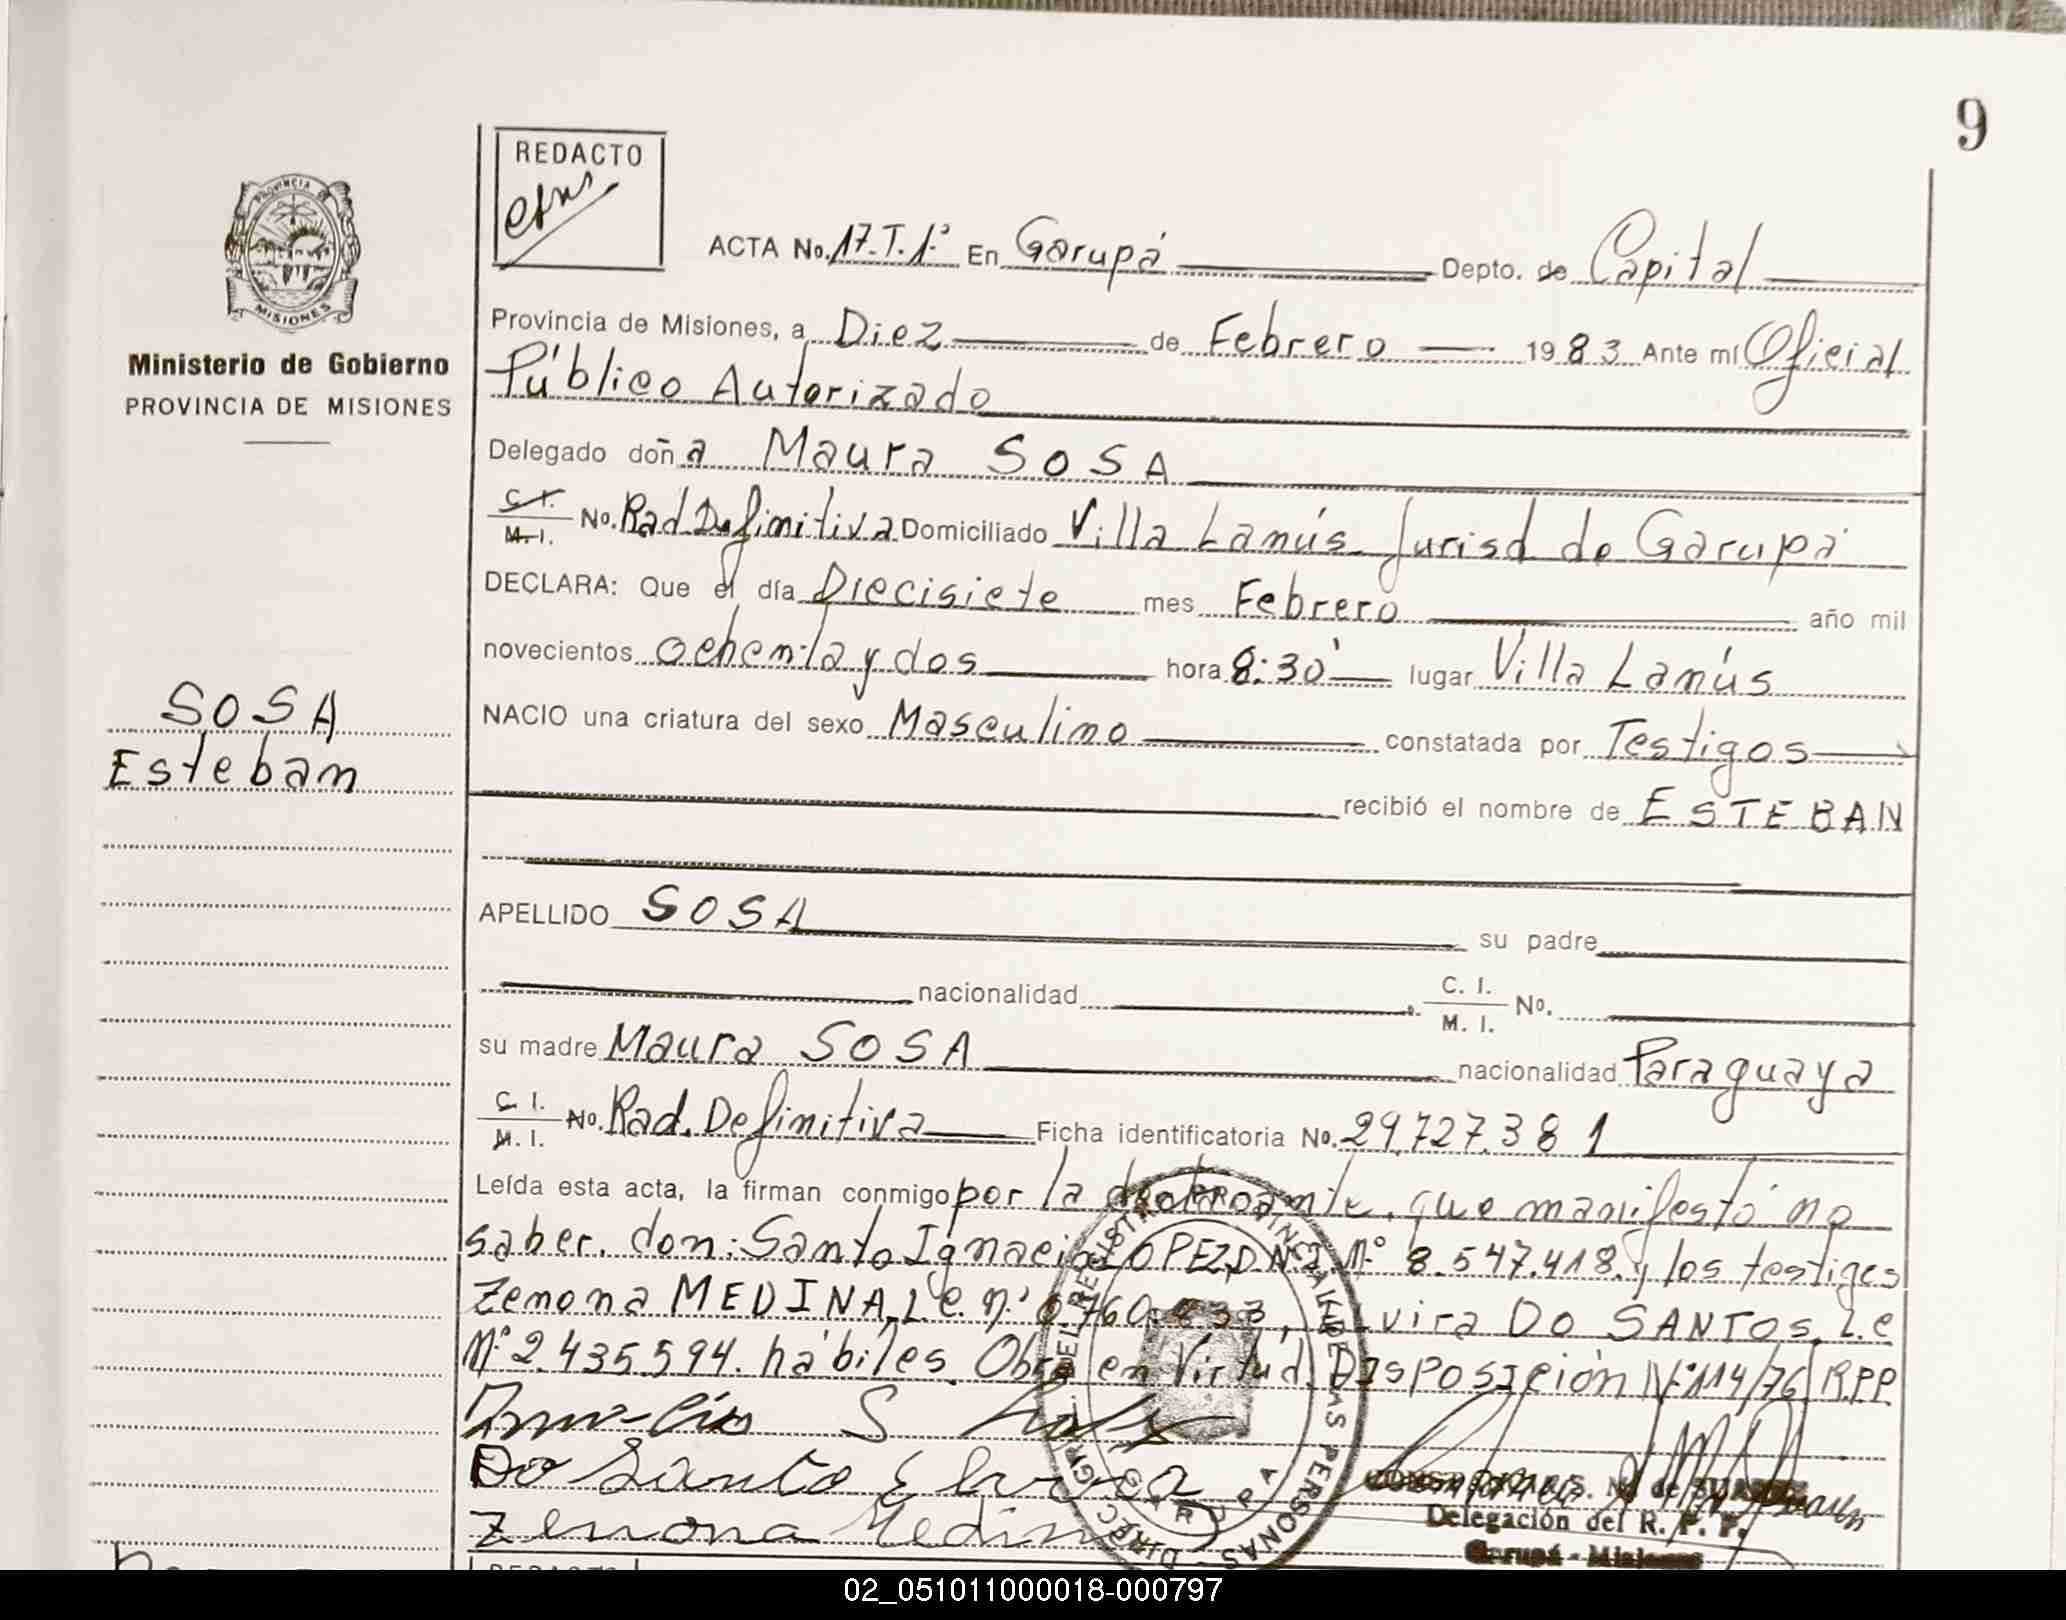 9
REDACTO
PROVINCIA DE
MISIONES
Ministerio de Gobierno
PROVINCIA DE MISIONES
ACTA No. 17.T.1º En Garupá Depto. de Capital
Provincia de Misiones, a Diez de Febrero 1983 Ante mí Oficial
Público Autorizado
Delegado doña Maura SOSA
C. I. M. I. No. Rad. Definitiva Domiciliado Villa Lanús Jurisd de Garupá
DECLARA: Que el día Diecisiete mes Febrero año mil
novecientos ochenta y dos hora 8:30' lugar Villa Lanús
NACIO una criatura del sexo Masculino constatada por Testigos
recibió el nombre de ESTEBAN
SOSA
Esteban
APELLIDO SOSA su padre
nacionalidad C. I. M. I. No.
su madre Maura SOSA nacionalidad Paraguaya
C. I. M. I. No. Rad. Definitiva Ficha identificatoria No. 29.727.381
Leída esta acta, la firman conmigo por la declarante, que manifestó no
saber. don: Santo Ignacio LOPEZ, D.N.I. Nº 8.547.418. y los testigos
Zenona MEDINA, L.e. nº 833, DO SANTOS, L.e
Nº 2.435.594. hábiles. Obro en Virtud Disposición Nº 114/76 R.P.P.
Do Santo
Zenona Medina
DEL REGISTRO PROVINCIAL DE LAS PERSONAS - DIREC. GRAL.
GARUPA
Delegación del R. P. P.
Garupá - Misiones
02_051011000018-000797